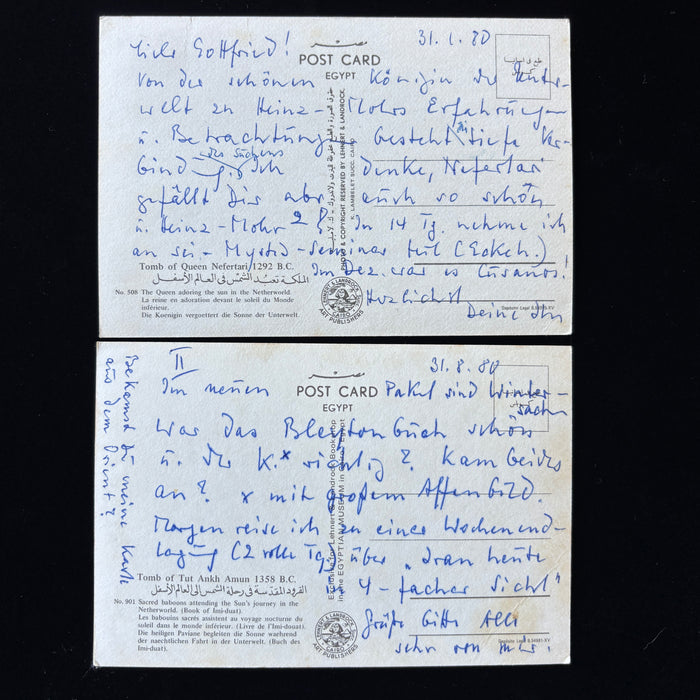 31.1.80
Liebe Gottfried!
مصر
POST CARD
EGYPT
Von der schönen Königin der Unter-
welt zu Heinz-Mohrs Erfahrungen
u. Betrachtung besteht die tiefe Ver-
bindg. Ich denke, Nefertari
gefällt Dir aber auch so schön
u. Heinz-Mohr? In 14 Tg. nehme ich
an sei- Mystik-Seminar teil (Eckeh.)
Im Dez. war es Cusanus!
Herzlichst
Deine
Tomb of Queen Nefertari 1292 B.C.
الملكة تعبد الشمس في العالم الأسفل
No. 508 The Queen adoring the sun in the Netherworld.
La reine en adoration devant le soleil du Monde
inférieur.
Die Koenigin vergoettert die Sonne der Unterwelt.
PHOTO & COPYRIGHT RESERVED BY LEHNERT & LANDROCK
K. LAMBELET SUCC. CAIRO
LEHNERT & LANDROCK
CAIRO
ART PUBLISHERS
II
31.8.80
مصر
POST CARD
EGYPT
Im neuen Paket sind Winter-
sachen
War das Buch schön
u. der K.x richtig? Kam beides
an? x mit großem Affenbild.
Morgen reise ich zu einer Wochenend-
tagung (2 volle Tg. über "dran heute
in 4-facher Sicht"
Grüße bitte alle
sehr von mir.
Bekamst Du meine Karte
aus dem Orient?
Tomb of Tut Ankh Amun 1358 B.C.
القرود المقدسة في رحلة الشمس إلى العالم الأسفل
No. 901 Sacred baboons attending the Sun's journey in the
Netherworld. (Book of Imi-duat).
Les babouins sacrés assistent au voyage nocturne du
soleil dans le monde inférieur. (Livre de l'Imi-douat).
Die heiligen Paviane begleiten die Sonne waehrend
der naechtlichen Fahrt in der Unterwelt. (Buch des
Imi-duat).
Exclusive for Lehnert & Landrock Bookshop
in the EGYPTIAN MUSEUM in Cairo, Egypt
LEHNERT & LANDROCK
CAIRO
ART PUBLISHERS